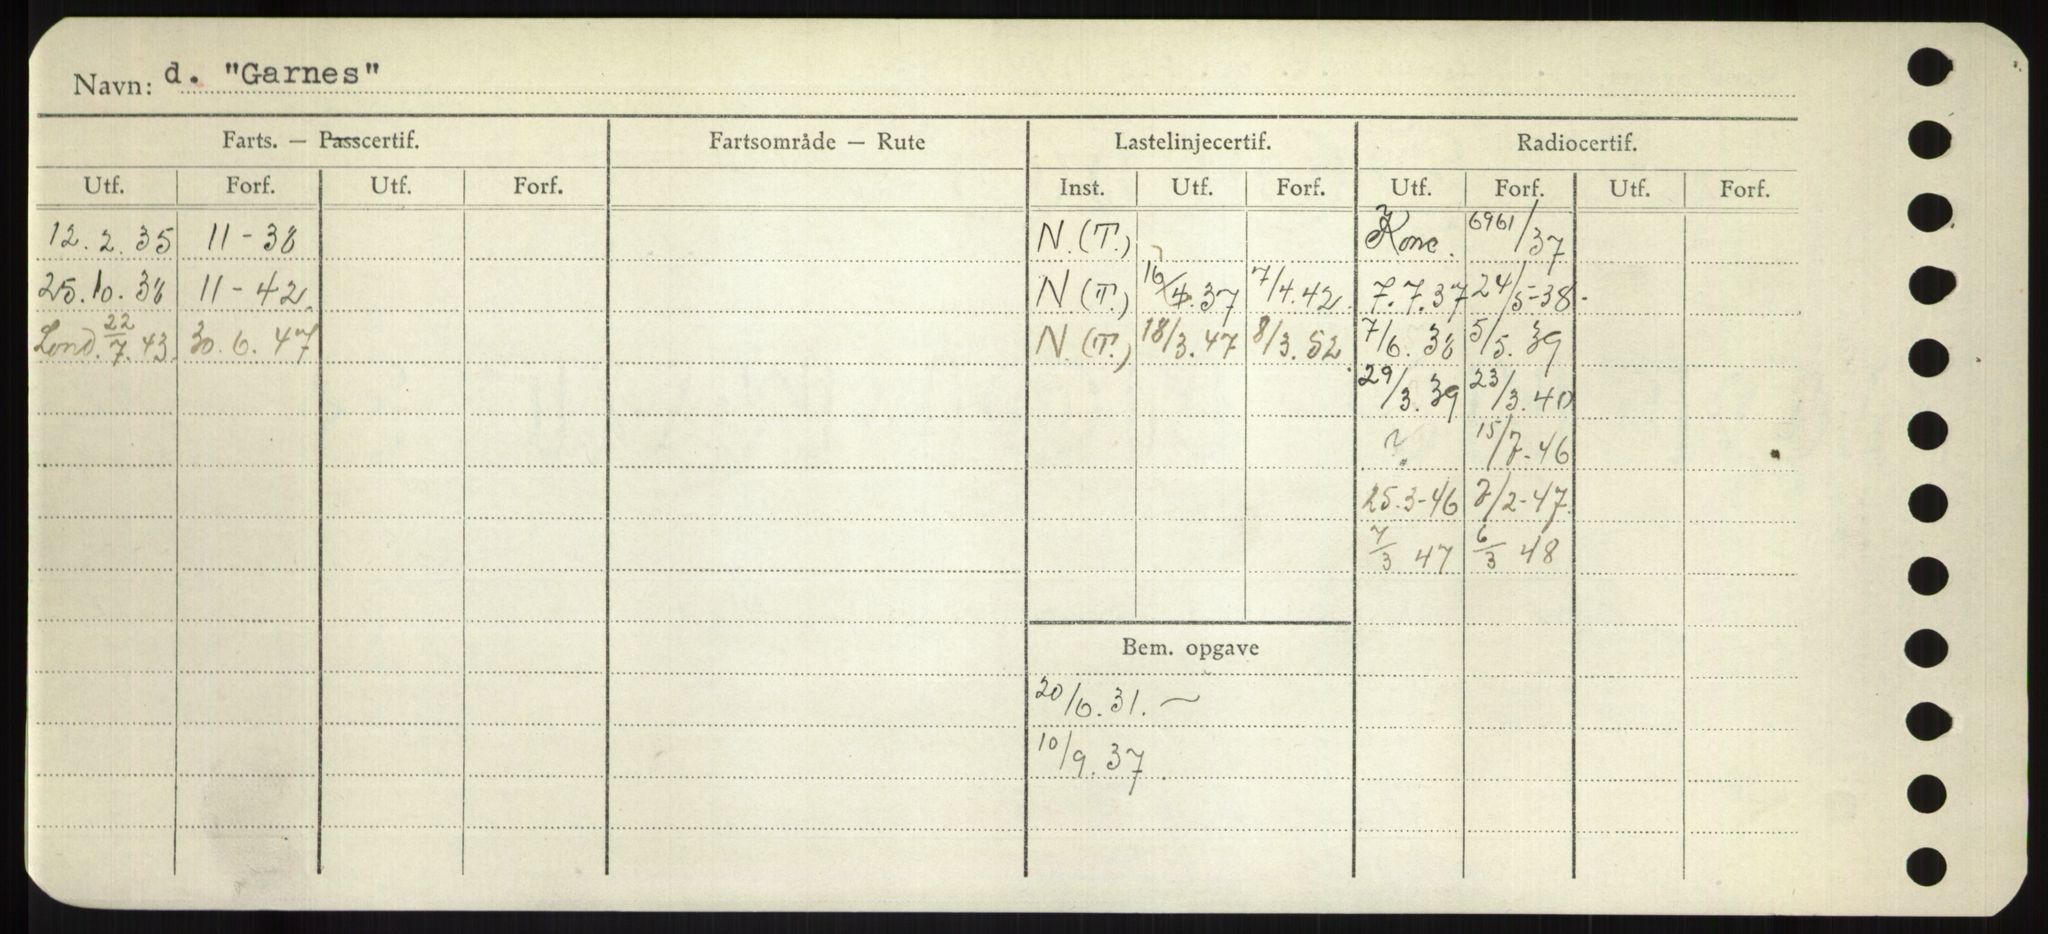 Navn: d. "Garnes"
Farts. — Passcertif. Fartsområde — Rute Lastelinjecertif. Radiocertif.
Utf. Forf. Utf. Forf. Inst. Utf. Forf. Utf. Forf. Utf. Forf.
12.2.35 11-38 N.(T.) Konc. 6961/37
25.10.38 11-42 N(T.) 16/4.37 7/4.42 7.7.37 24/5-38.
Lond. 22/7.43 30.6.47 N.(T.) 18/3.47 8/3.52 7/6.38 5/5.39
29/3.39 23/3.40
? 15/7-46
25.3-46 /2-47
7/3 47 6/3 48
Bem. opgave
20/6.31. ~
10/9.37.